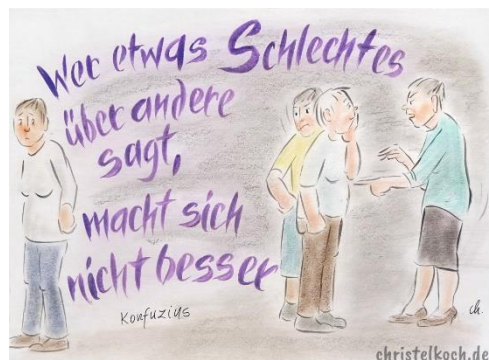 Wer etwas Schlechtes
über andere
sagt,
macht sich
nicht besser
Konfuzius
ch.
christelkoch.de